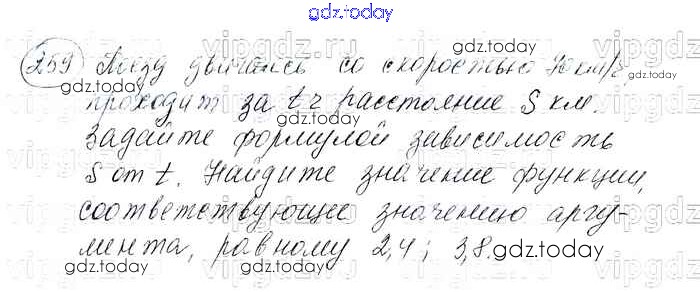 gdz.today
259 Поезд двигаясь со скоростью 70 км/ч,
gdz.today
проходит за t ч расстояние S км.
Задайте формулой зависимость
S от t. Найдите значение функции,
соответствующее значению аргу-
мента, равному 2,4; 3,8.
gdz.today
gdz.today